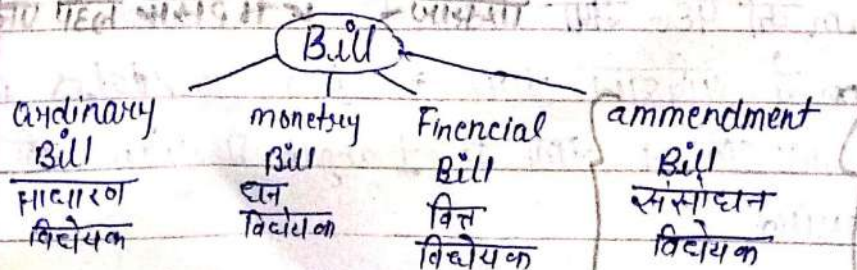 Bill
ordinary
Bill
साधारण
विधेयक
monetry
Bill
धन
विधेयक
Finencial
Bill
वित्त
विधेयक
ammendment
Bill
संसोधन
विधेयक